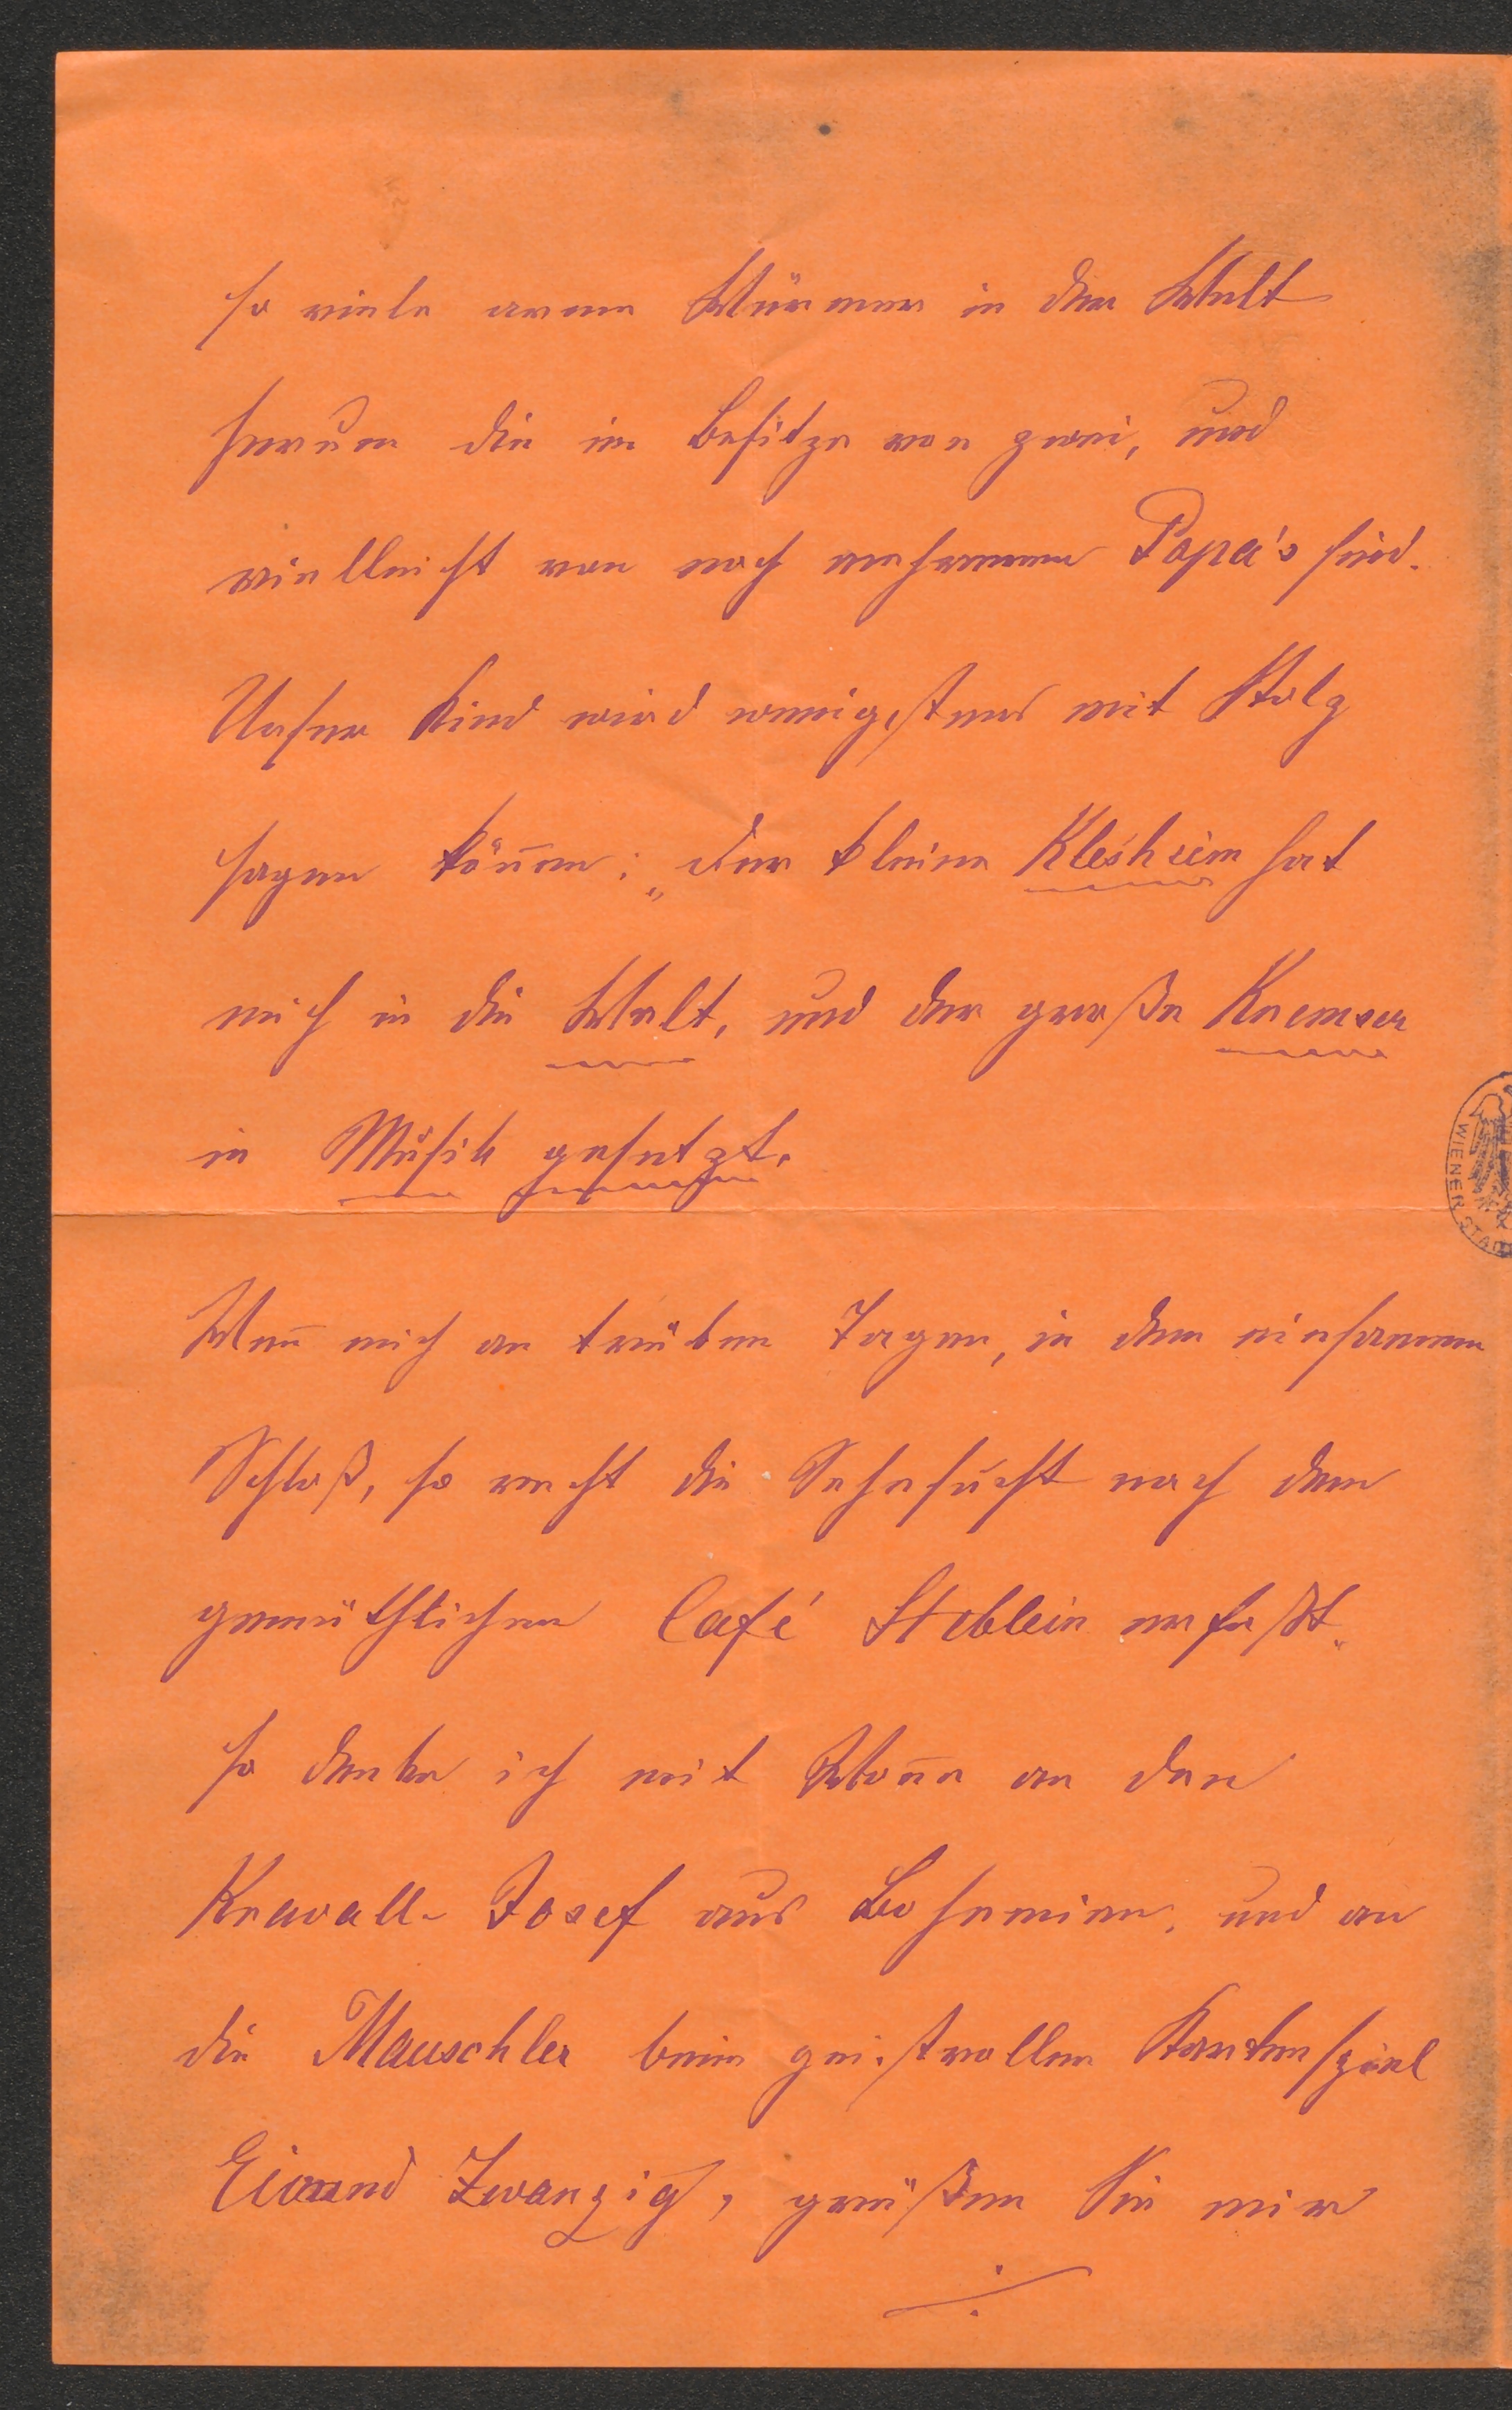 so viele arme Würmer in der Welt
herum die im Besitze von zwei, und
vielleicht von noch mehreren Papa's sind.
Unser Kind wird wenigstens mit Stolz
sagen können: „der kleine Klesheim hat
mich in die Welt, und der große Kremser
in Musik gesetzt.
Wenn mich an trüben Tagen, in dem einsamen
Schloß, so recht die Sehnsucht nach dem
gemüthlichen Café Steblein erfaßt,
so denke ich mit Wonne an den
Kravall-Josef aus Bohemien, und an
die Mauschler beim geistvollen Kartenspiel
Einund Zwanzig, grüßen Sie mir
WIENER STAD